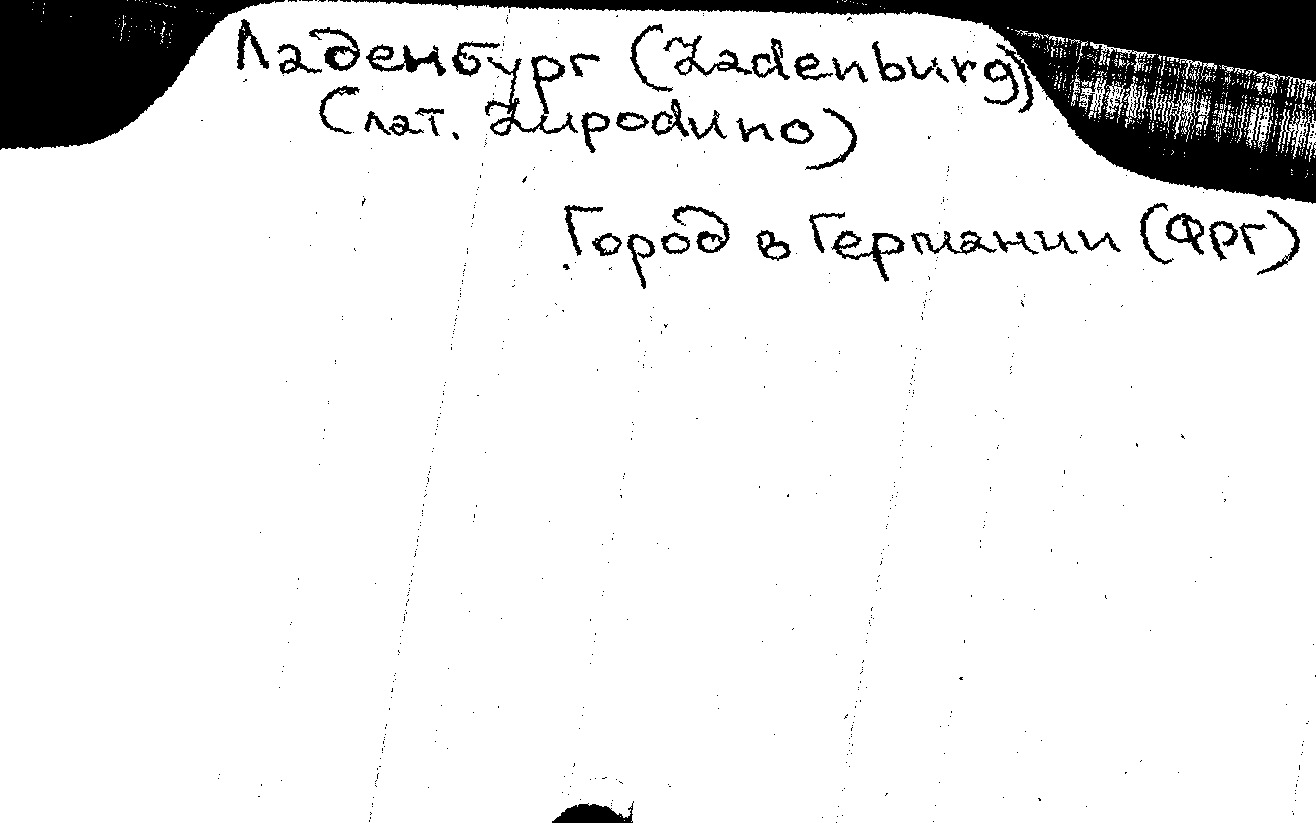 Ладенбург (Ladenburg)
(лат. Лиродино)
Город в Германии (ФРГ)